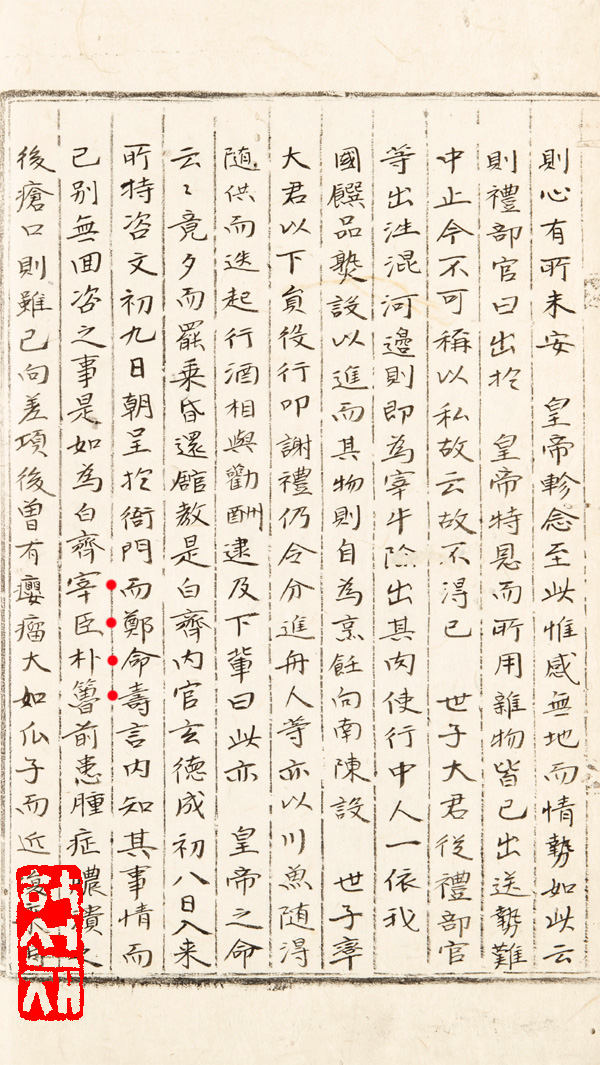 則心有所未安　皇帝軫念至此惟感無地而情勢如此云
則禮部官曰出於　皇帝特恩而所用雜物皆已出送勢難
中止今不可稱以私故云故不得已　世子大君從禮部官
等出往混河邊則即為宰牛除出其肉使行中人一依我
國饌品熨設以進而其物則自為烹飪向南陳設　世子率
大君以下員役行叩謝禮仍令分進舟人等亦以川魚隨得
随供而迭起行酒相與勸酬逮及下輩曰此亦　皇帝之命
云〻竟夕而罷乗昏還館教是白齊內官玄德成初八日入来
所持咨文初九日朝呈於衙門而鄭命壽言內知其事情而
已別無回咨之事是如為白齊宰臣朴簹前患腫症膿潰之
後瘡口則雖已向差項後曽有癭瘤大如瓜子而近